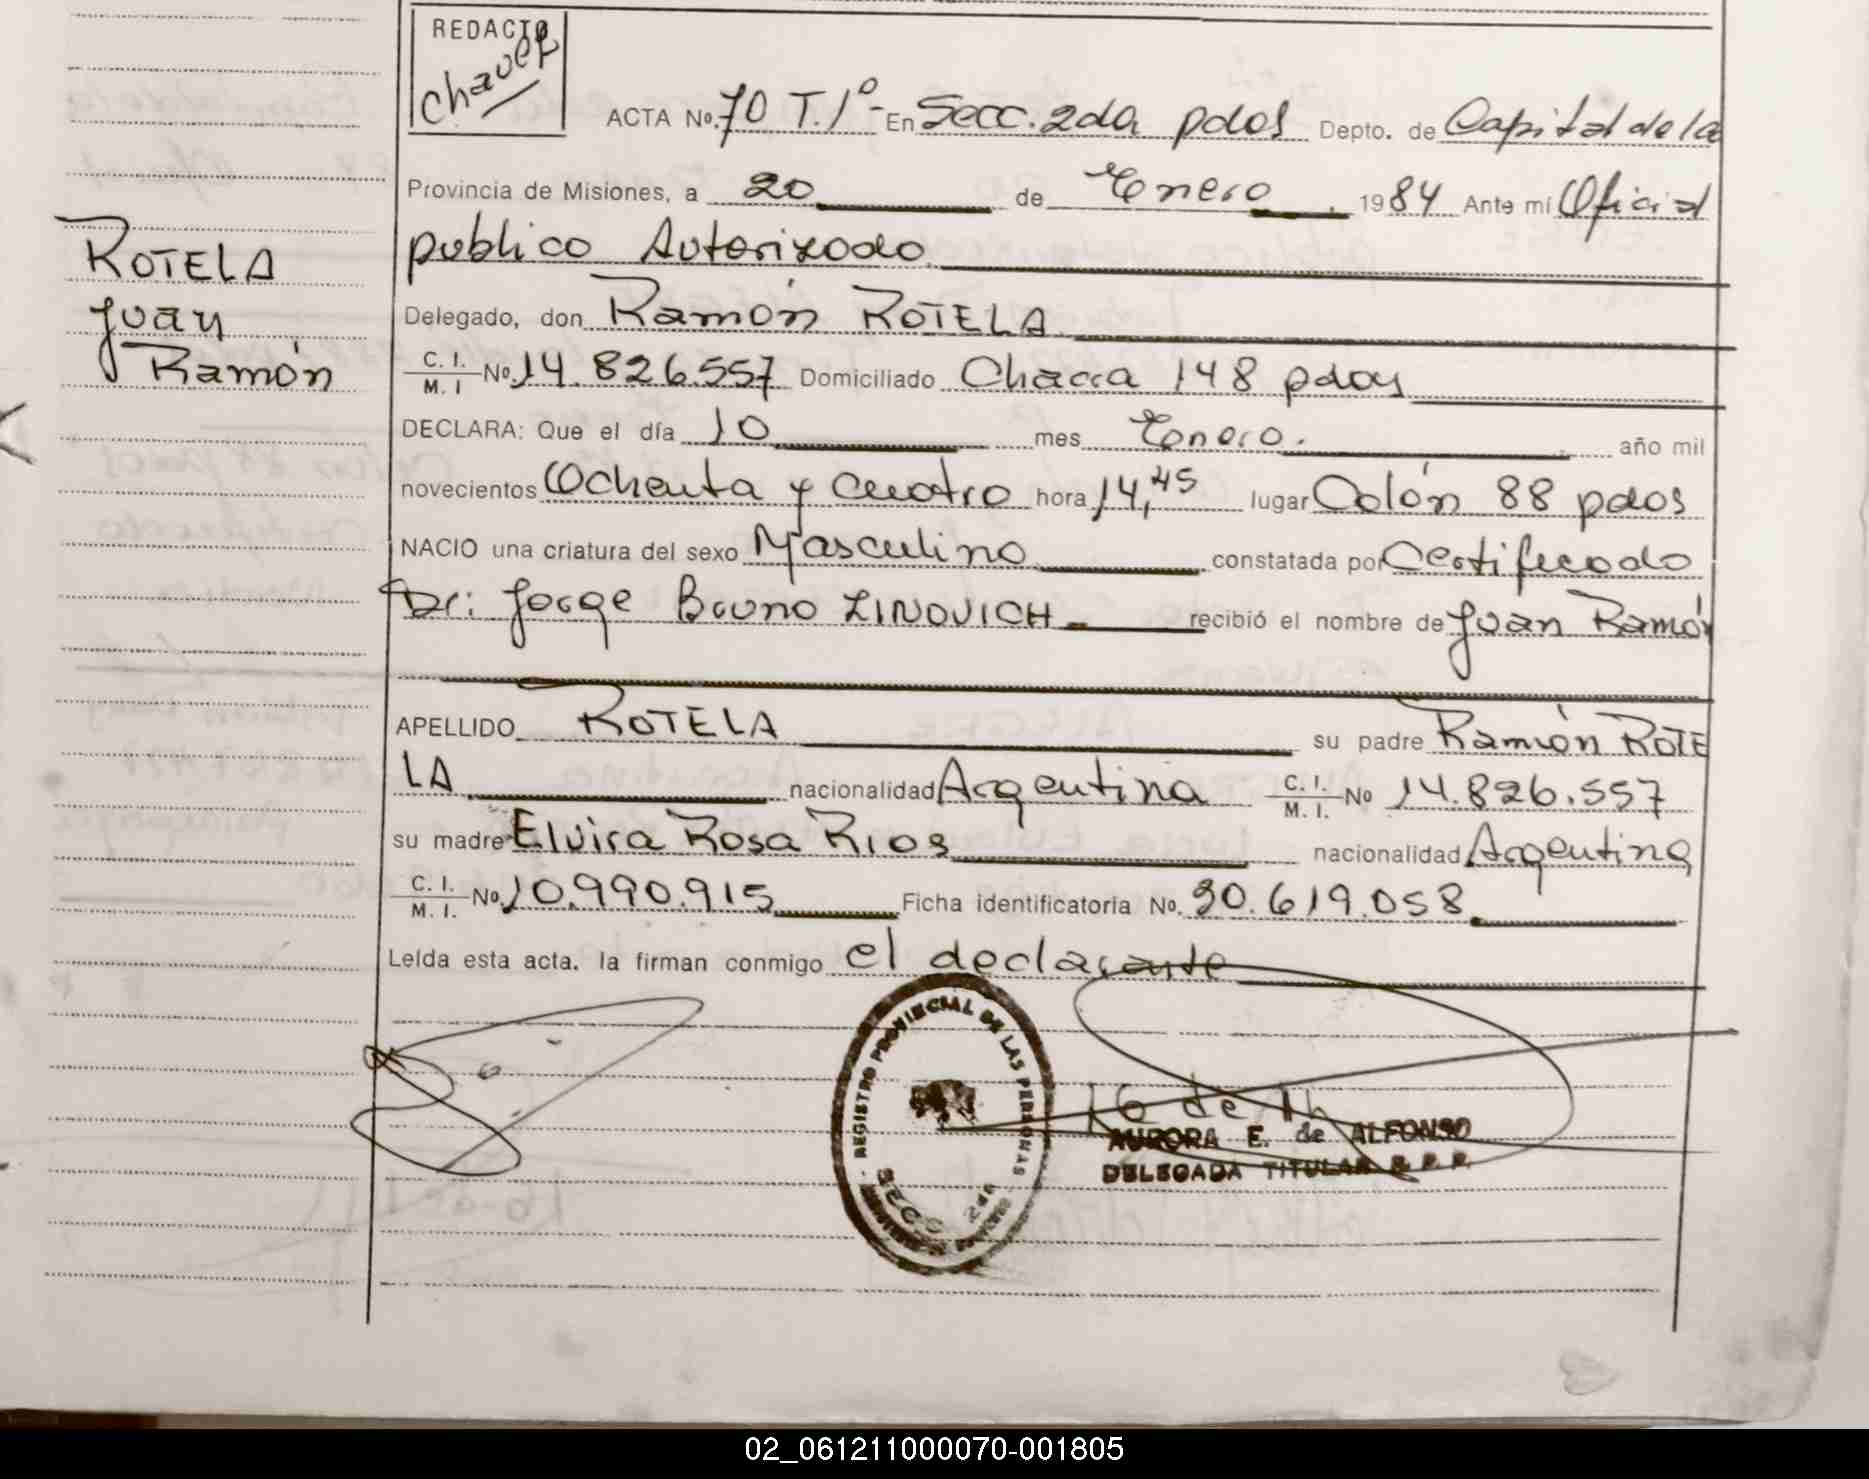 REDACTO
Chavez
ACTA Nº. 70 T.1º- En Secc. 2da pdas Depto. de Capital de la
Provincia de Misiones, a 20 de Enero 1984 Ante mi Oficial
publico Autorizado
Delegado, don Ramón ROTELA
C. I. / M. I Nº. 14.826.557 Domiciliado Chacra 148 pdas
DECLARA: Que el día 10 mes Enero. año mil
novecientos Ochenta y Cuatro hora 14,45 lugar Colón 88 pdas
NACIO una criatura del sexo Masculino constatada por Certificado
Dr: Jorge Bruno ZINOVICH recibió el nombre de Juan Ramón
APELLIDO ROTELA su padre Ramón ROTE
LA nacionalidad Argentina C. I. / M. I. Nº 14.826.557
su madre Elvira Rosa Rios nacionalidad Argentina
C. I. / M. I. Nº. 10.990.915 Ficha identificatoria No. 30.619.058
Leída esta acta. la firman conmigo el declarante
ROTELA
Juan
Ramón
REGISTRO PROVINCIAL DE LAS PERSONAS
SECC 2da
AURORA E. de ALFONSO
DELEGADA TITULAR R. P. P.
02_061211000070-001805